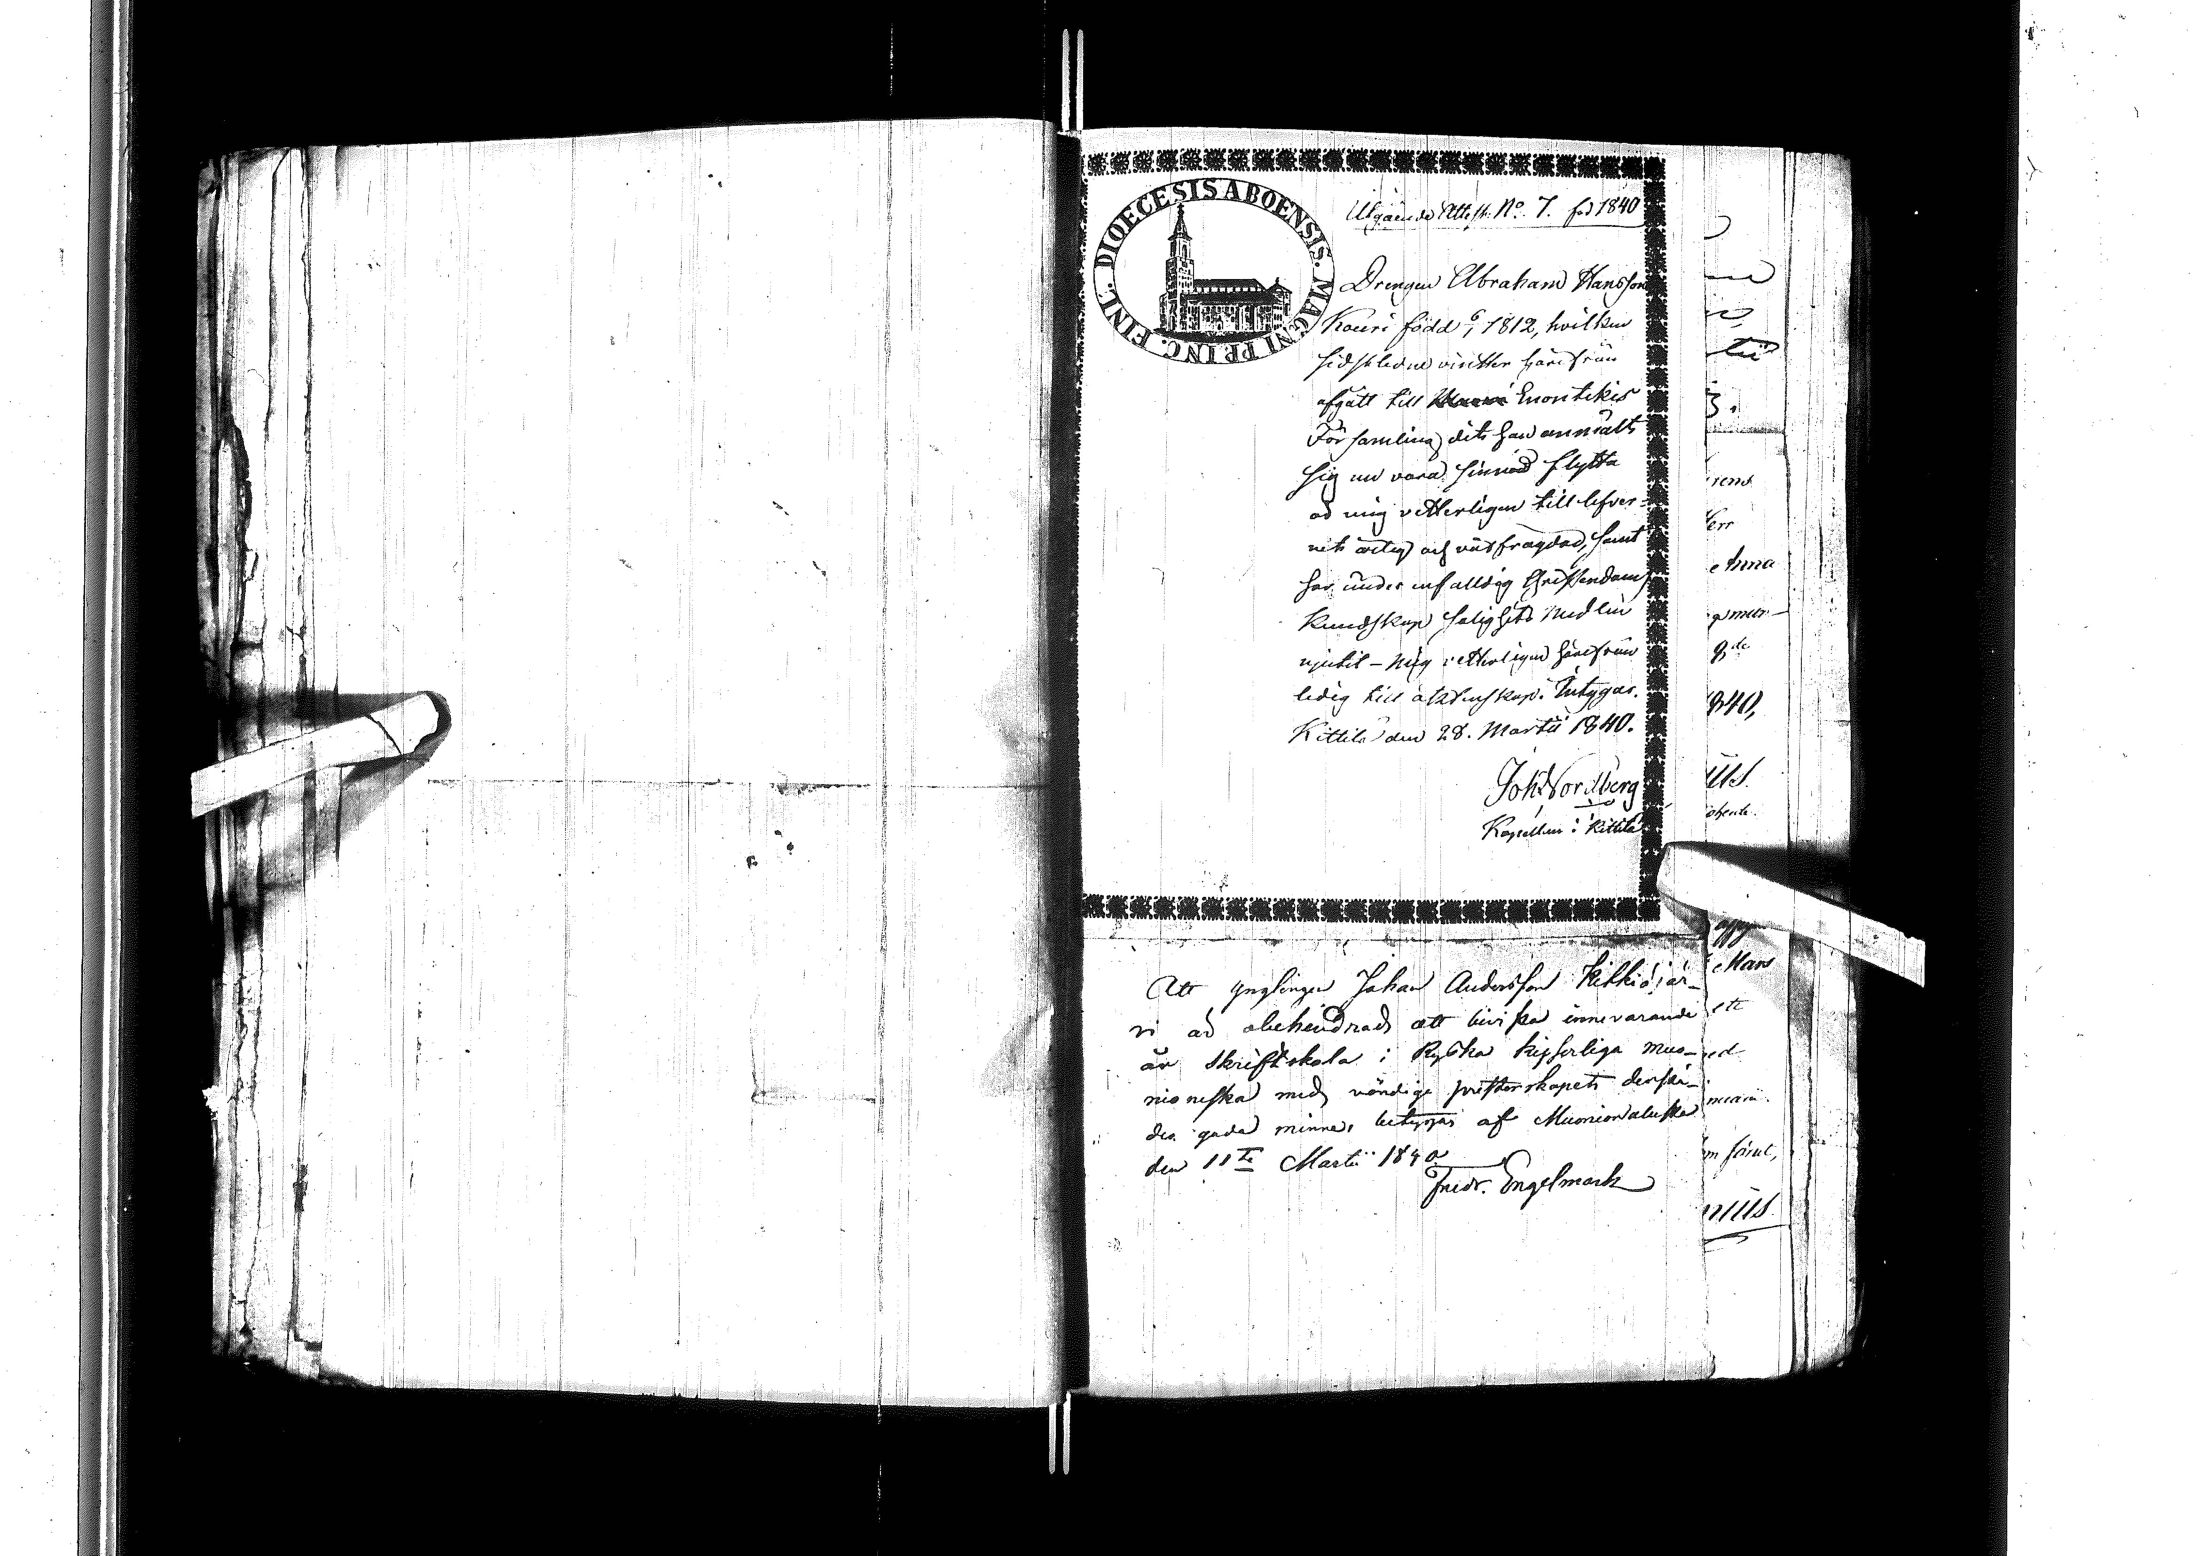 DIOECESIS ABOENSIS. MAGNI PRINC. FINL.
Utgående Attest. No. 7. för 1840
Drengen Abraham Hansson
Kouri född 6/1 1812, hvilken
sidstledne vintter härifrån
afgått till Enontekis
Församling dit han anmält
sig nu vara sinnad flytta
äd mig vetterligen till lefver-
net ärlig och välfrägdad, samt
har under enfalldig Christendoms
Kundskap salighets medlen
njutit - mig vetterligen härifrån
ledig till äktenskap. Intygar.
Kittilä den 28. Martii 1840.
Joh Nordberg
Kapellan i Kittilä
Att ynglingen Johan Andersson Kihkiöjär-
vi är obehindrad att bevista innevarande
år Skriftskola i Ryska kejserliga Muo-
nioniska med värdige presterskapets derstä-
des goda minne, betygas af Muonionaluska
den 11te Martii 1840
Fredr. Engelmark
tii
3.
rens
Herr
Anna
8de
1840,
Mars
ett